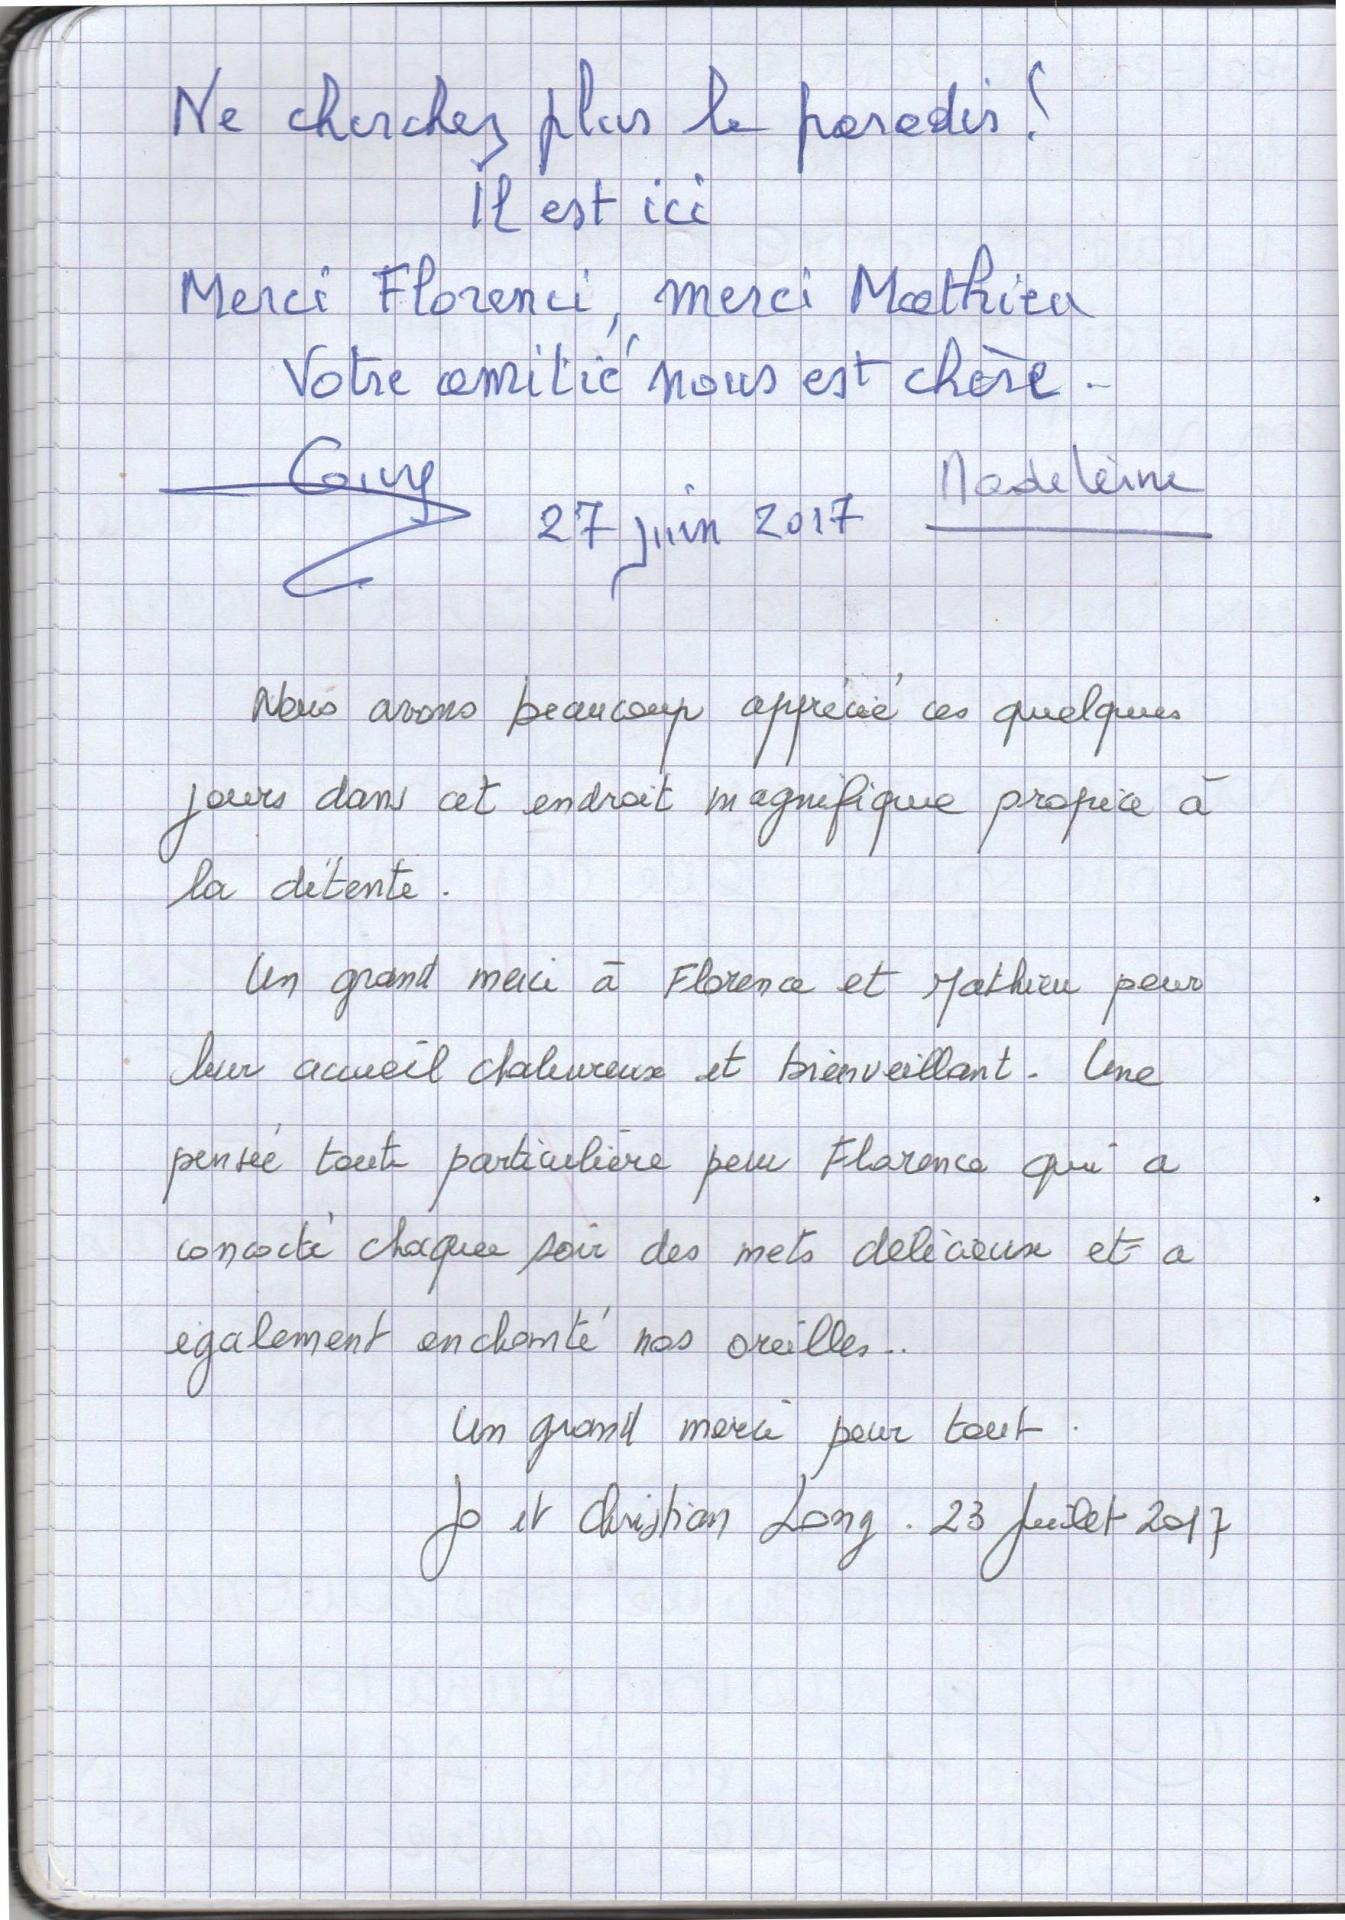 Ne cherchez plus le paradis !
Il est ici
Merci Florence, merci Mathieu
Votre amitié nous est chère -
Guy 27 juin 2017 Madeleine
Nous avons beaucoup apprécié ces quelques
jours dans cet endroit magnifique propice à
la détente.
Un grand merci à Florence et Mathieu pour
leur accueil chaleureux et bienveillant. Une
pensée toute particulière pour Florence qui a
concocté chaque soir des mets délicieux et a
également enchanté nos oreilles..
Un grand merci pour tout.
Jo et Christian Long. 23 Juillet 2017